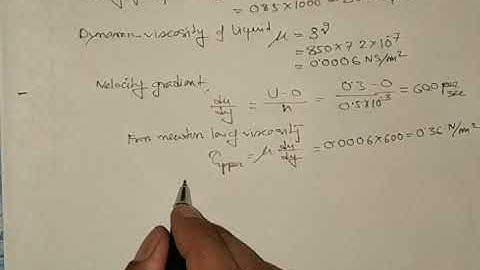 = 0.85 × 1000 =
Dynamic viscosity of liquid μ = ρϑ
= 850 × 7.2 × 10⁻⁷
= 0.0006 NS/m²
Velocity gradient,
du/dy = U-0/h = 0.3-0/0.5×10⁻³ = 600 per sec
From newton law viscosity
τupper = μ du/dy = 0.0006 × 600 = 0.36 N/m²